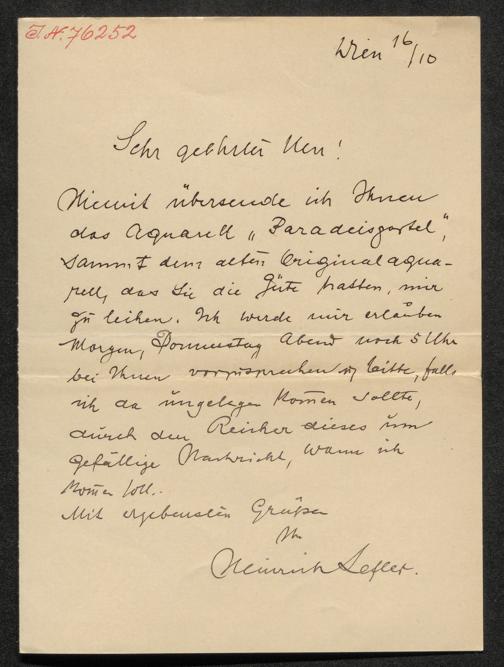 I.N. 76252
Wien 16/10
Sehr geehrter Herr!
Hiemit übersende ich Ihnen
das Aquarell „Paradeisgartel",
sammt dem alten Originalaqua-
rell, das Sie die Güte hatten, mir
zu leihen. Ich werde mir erlauben
Morgen, Donnerstag Abend nach 5 Uhr
bei Ihnen vorzusprechen u bitte, falls
ich da ungelegen kom̄en sollte,
durch den Reicher dieses um
gefällige Nachricht, wann ich
kom̄en soll.
Mit ergebensten Grüßen
Ihr
Heinrich Lefler.